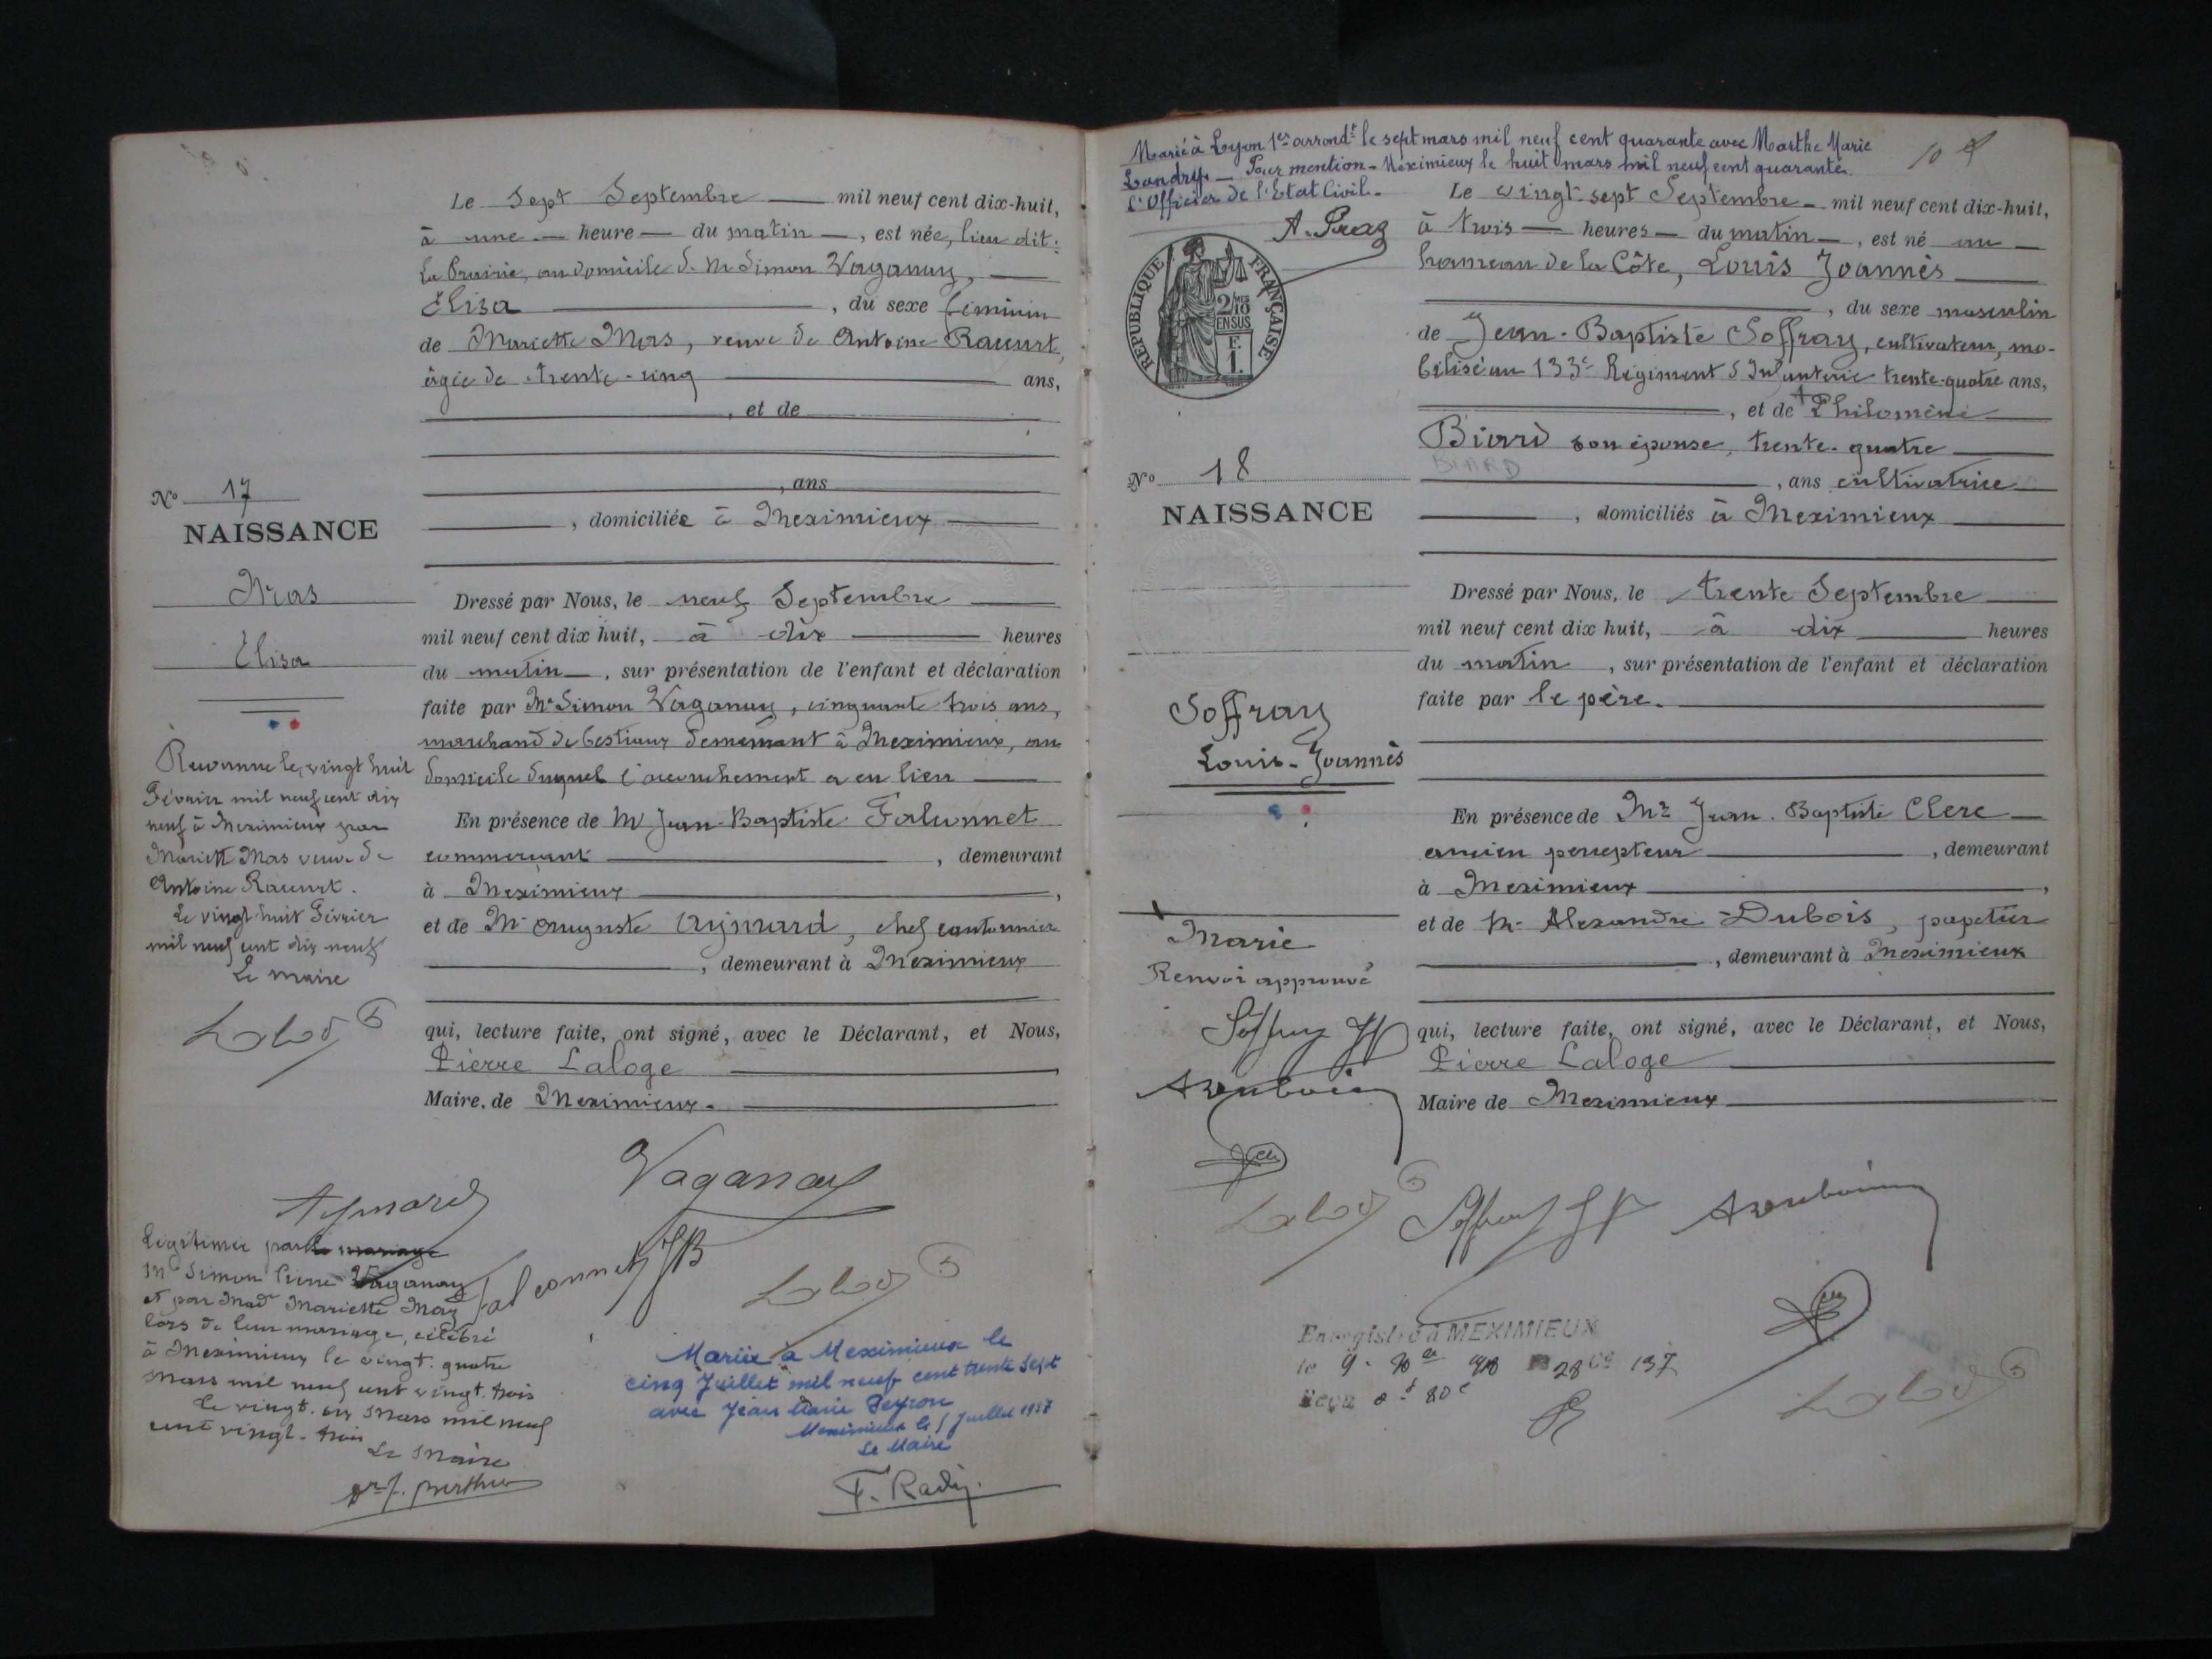 Le Sept Septembre mil neuf cent dix-huit,
à une heure du matin, est née, lieu dit:
La Prairie, au domicile de Mr Simon Vaganay,
Elisa, du sexe féminin
de Mariette Mas, veuve de Antoine Racurt,
âgée de trente-cinq ans,
, et de
, ans
, domiciliée à Meximieux
No 17
NAISSANCE
Mas
Elisa
Dressé par Nous, le neuf Septembre
mil neuf cent dix huit, à dix heures
du matin, sur présentation de l'enfant et déclaration
faite par Mr Simon Vaganay, cinquante trois ans,
marchand de bestiaux demeurant à Meximieux, au
domicile duquel l'accouchement a eu lieu
En présence de Mr Jean-Baptiste Falconnet
commerçant, demeurant
à Meximieux,
et de Mr Auguste Aymard, chef cantonnier
, demeurant à Meximieux
qui, lecture faite, ont signé, avec le Déclarant, et Nous,
Pierre Laloge
Maire de Meximieux.
Reconnue le vingt huit
Février mil neuf cent dix
neuf à Meximieux par
Mariette Mas veuve de
Antoine Racurt.
Le vingt huit Février
mil neuf cent dix neuf
Le maire
Vaganay
Aymard
Falconnet JB
Légitimée par le mariage
Mr Simon Pierre Vaganay
et par Made Mariette Mas
lors de leur mariage, célébré
à Meximieux le vingt-quatre
Mars mil neuf cent vingt-trois
Le vingt-six Mars mil neuf
cent vingt-trois
Le Maire
Mariée à Meximieux le
cinq Juillet mil neuf cent trente sept
avec Jean Marie Peyron
Meximieux le 5 Juillet 1937
Le Maire
F. Radix
Marié à Lyon 1er arrondt le sept mars mil neuf cent quarante avec Marthe Marie
Landry - Pour mention - Meximieux le huit mars mil neuf cent quarante.
l'Officier de l'Etat Civil.
A. Praz
10
RÉPUBLIQUE FRANÇAISE
2/10 MES
EN SUS
F.
1.
Le vingt-sept Septembre mil neuf cent dix-huit,
à trois heures du matin, est né au
hameau de la Côte, Louis Joannès
, du sexe masculin
de Jean-Baptiste Soffray, cultivateur, mo-
bilisé au 133e Régiment d'Infanterie trente-quatre ans,
, et de + Philomène
Biard son épouse, trente-quatre
BIARD
, ans cultivatrice
, domiciliés à Meximieux
No 18
NAISSANCE
Soffray
Louis-Joannès
Dressé par Nous, le trente Septembre
mil neuf cent dix huit, à dix heures
du matin, sur présentation de l'enfant et déclaration
faite par le père.
En présence de Mr Jean-Baptiste Clerc
ancien percepteur, demeurant
à Meximieux,
et de Mr Alexandre Dubois, papetier
, demeurant à Meximieux
qui, lecture faite, ont signé, avec le Déclarant, et Nous,
Pierre Laloge
Maire de Meximieux
+
Marie
Renvoi approuvé
Enregistré à MEXIMIEUX